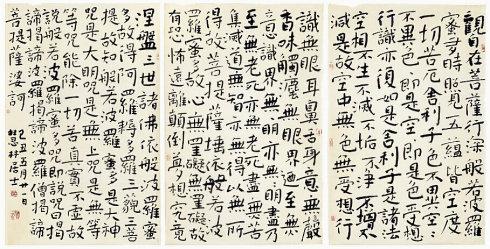 觀自在菩薩行深般若波羅
蜜多時照見五蘊皆空度
一切苦厄舍利子色不異空空
不異色色即是空空即是色受想
行識亦復如是舍利子是諸法
空相不生不滅不垢不淨不增不
減是故空中無色無受想行
識無眼耳鼻舌身意無色聲
香味觸法無眼界乃至無
意識界無無明亦無無明盡乃
至無老死亦無老死盡無苦
集滅道無智亦無得以無所
得故菩提薩埵依般若波
羅蜜多故心無罣礙無罣礙故無
有恐怖遠離顛倒夢想究竟
涅盤三世諸佛依般若波羅蜜
多故得阿耨多羅三藐三菩
提故知般若波羅蜜多是大神
咒是大明咒是無上咒是無等
等咒能除一切苦真實不虛故
說般若波羅蜜多咒即說咒曰揭
諦揭諦波羅揭諦波羅僧揭諦
菩提薩婆訶
己丑五月廿一日